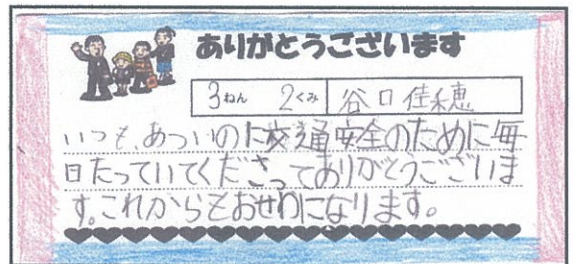 ありがとうございます
3ねん 2くみ 谷口佳穂
いつも、あついのに交通安全のために毎
日たっていてくださってありがとうございま
す。これからもおせわになります。